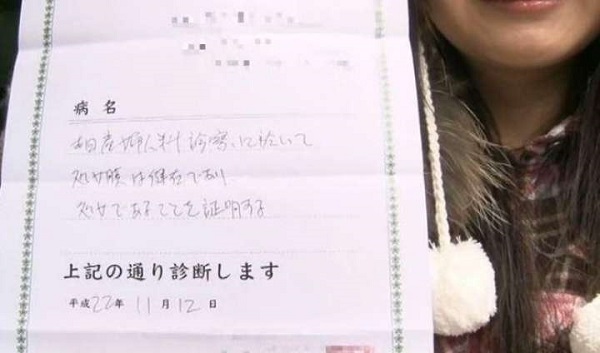 病名
産婦人科診察に於いて
処女膜は健在であり
処女であることを証明する
上記の通り診断します
平成22年 11月 12日